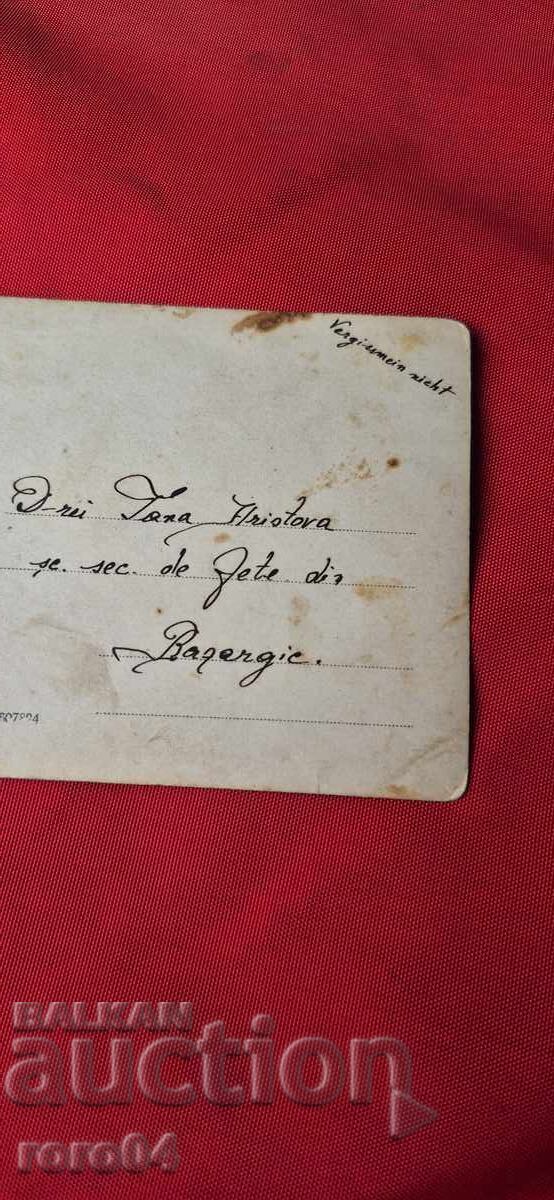 Vergissmein nicht
D-rei Tana Hristova
șc. sec. de fete din
Bazargic.
607824
BALKAN
auction
roro04